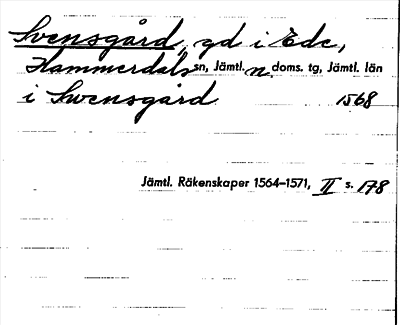 Svensgård, gd i Ede,
Hammerdals sn, Jämtl. n doms. tg, Jämtl. län
i Swensgård 1568
Jämtl. Räkenskaper 1564–1571, II s. 178